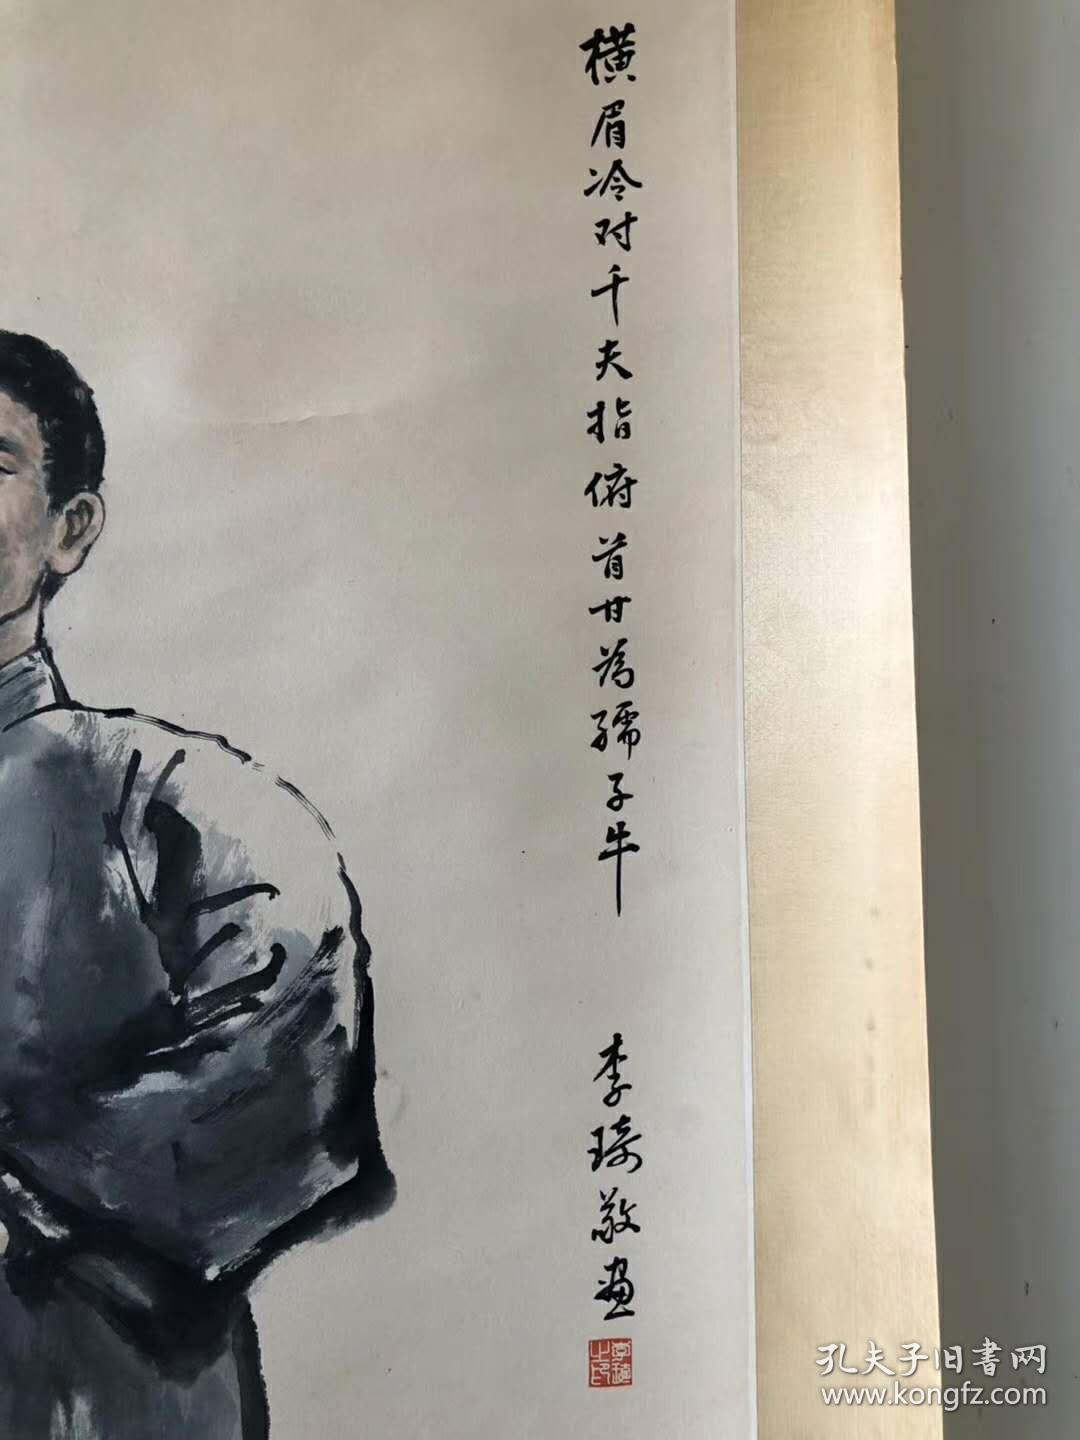 横眉冷对千夫指俯首甘为孺子牛
李琦敬画
李琦之印
孔夫子旧書网
www.kongfz.com